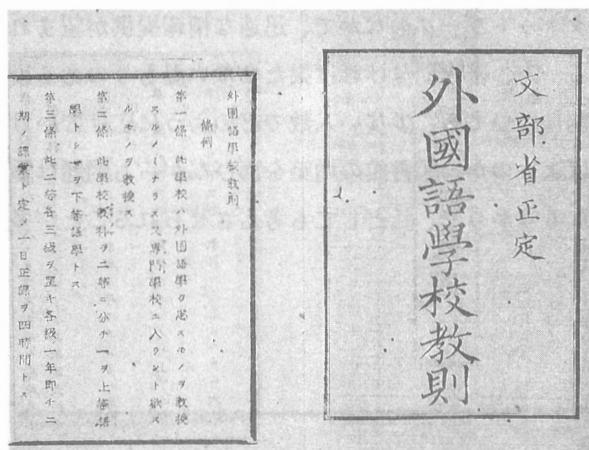 文部省正定
外國語學校教則
外國語學校教則
條例
第一條 此學校ハ外國語學ヲ志スモノヲ教授
スルノミナラス又專門學校ニ入ラント欲ス
ルモノヲ教授ス
第二條 此學校教科ヲ二等ニ分チ一ヲ上等語
學トシ一ヲ下等語學トス
第三條 此二等各三級ヲ置キ各級一年即チ二
期ノ課業ト定メ一日正課ヲ四時間トス